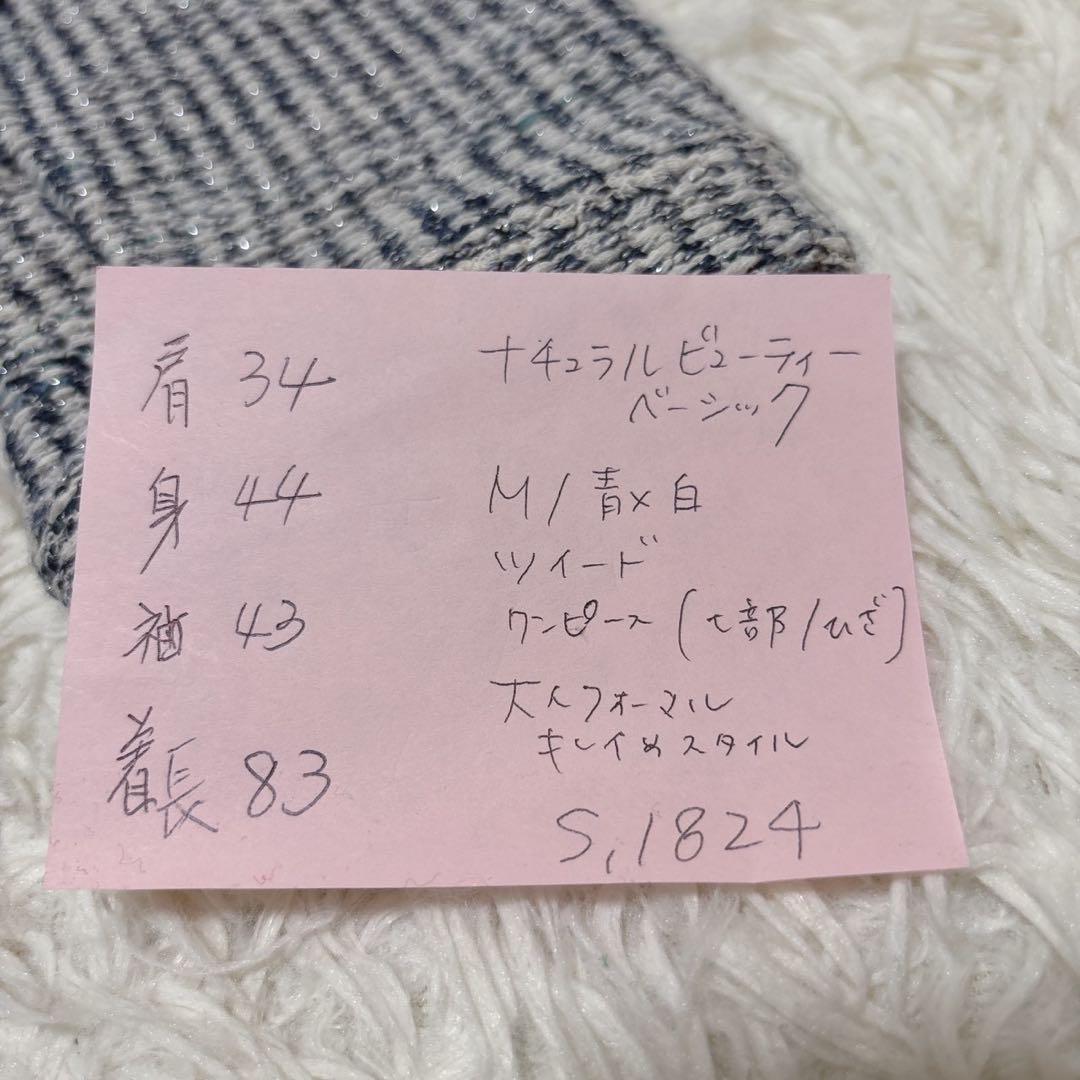 肩 34
身 44
袖 43
着長 83
ナチュラルビューティー
ベーシック
M/青×白
ツイード
ワンピース(七部/ひざ)
大人フォーマル
キレイめスタイル
S,1824